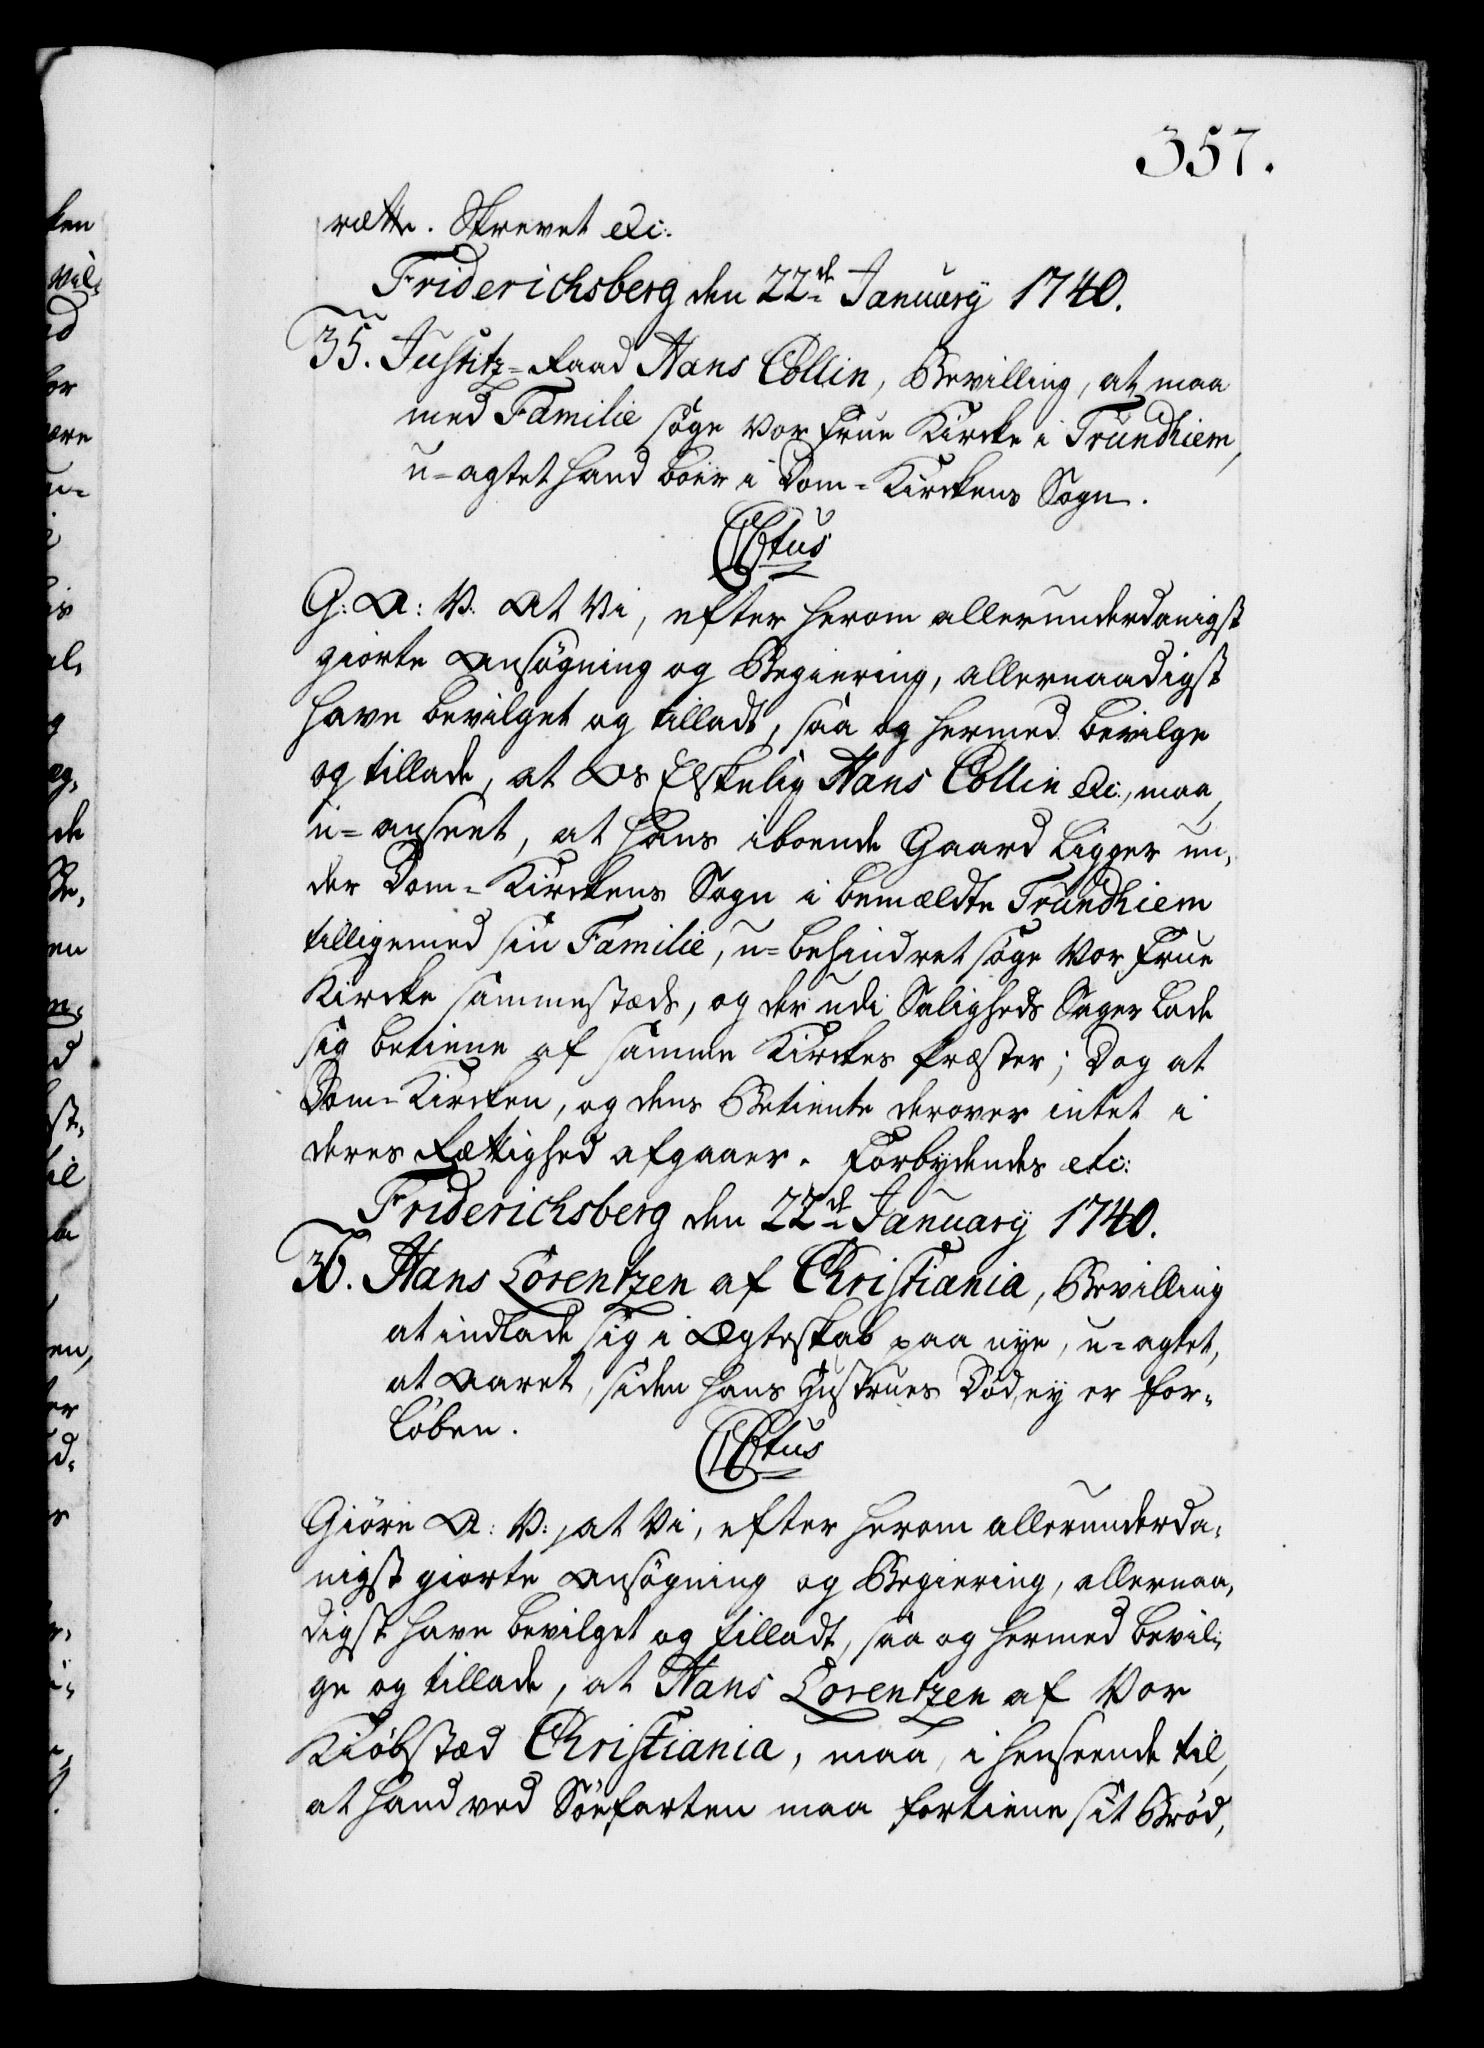 357.
rætte. Skrevet etc:
Friderichsberg den 22de January 1740.
35. Justitz-Raad Hans Collin, Bevilling, at maa
med Familie søge Vor Frue Kircke i Trundhiem,
u-agtet hand boer i Dom-Kirckens Sogn.
CVtus
G: A: V: At Vi, efter herom allerunderdanigst
giorte Ansøgning og Begiering, allernaadigst
have bevilget og tilladt, saa og hermed bevilge
og tillade, at Os Elskelig Hans Collin etc:, maa,
u-anseet, at hans iboende Gaard Ligger un-
der Dom-Kirckens Sogn i bemældte Trundhiem
tilligemed sin Familie, u-behindret søge Vor Frue
Kircke sammestæds, og der udi Saligheds Sager Lade
sig betiene af samme Kirckes Præster; Dog at
Dom-Kircken, og dens Betiente derover intet i
deres Rættighed afgaaer. Forbydendes etc:
Friderichsberg den 22de January 1740.
36. Hans Lorentzen af Christiania, Bevilling
at indlade sig i Ægteskab paa nye, u-agtet,
at Aaret, siden hans Hustrues Død, ey er for-
løben.
CVtus
Giøre A: V:, at Vi, efter herom allerunderda-
nigst giorte Ansøgning og Begiering, allernaa-
digst have bevilget og tilladt, saa og hermed bevil-
ge og tillade, at Hans Lorentzen af Vor
Kiøbstæd Christiania, maa, i henseende til,
at hand ved Søefarten maa fortiene sit Brød,